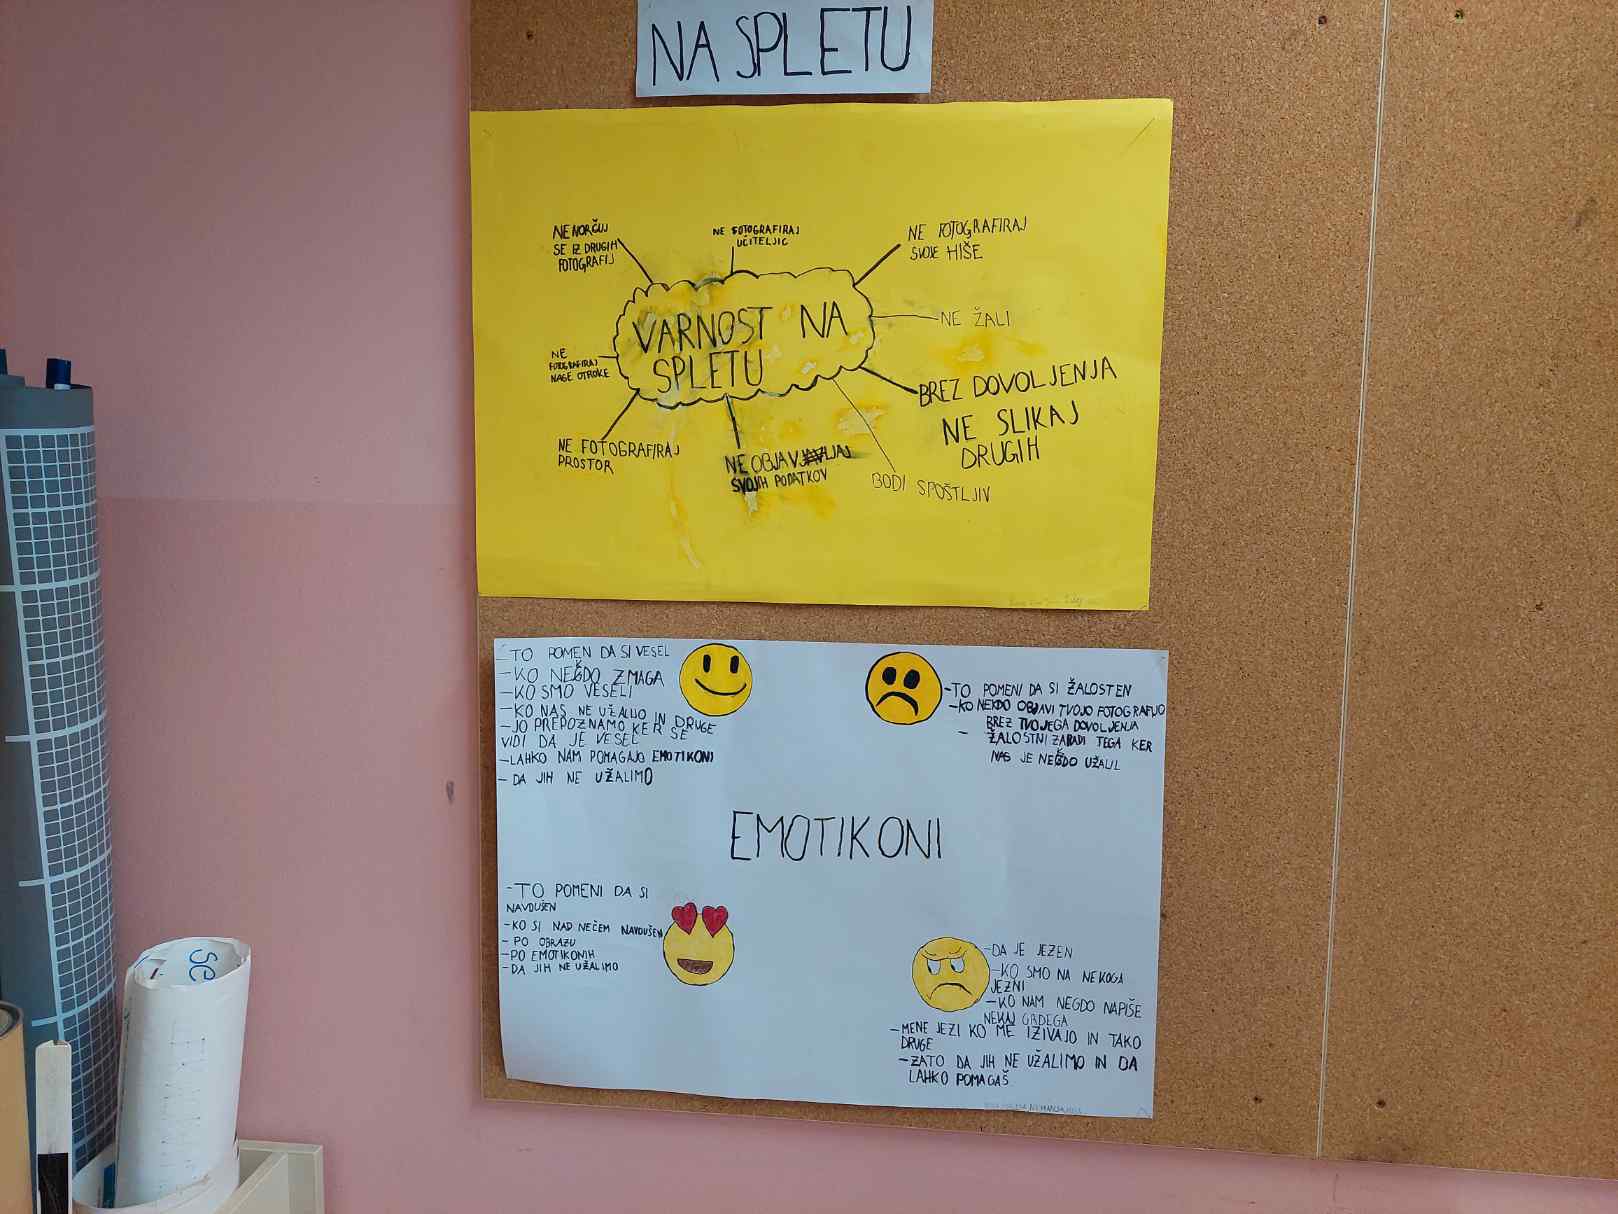 NA SPLETU
NE NORČUJ
SE IZ DRUGIH
FOTOGRAFIJ
NE FOTOGRAFIRAJ
UČITELJIC
NE FOTOGRAFIRAJ
SVOJE HIŠE
VARNOST NA
SPLETU
NE ŽALI
NE
FOTOGRAFIRAJ
NAGE OTROKE
BREZ DOVOLJENJA
NE SLIKAJ
DRUGIH
NE FOTOGRAFIRAJ
PROSTOR
NE OBJAVLJAJ
SVOJIH PODATKOV
BODI SPOŠTLJIV
- TO POMEN DA SI VESEL
- KO NEGDO ZMAGA
- KO SMO VESELI
- KO NAS NE UŽALIJO IN DRUGE
- JO PREPOZNAMO KER SE
VIDI DA JE VESEL
- LAHKO NAM POMAGAJO EMOTIKONI
- DA JIH NE UŽALIMO
- TO POMENI DA SI ŽALOSTEN
- KO NEKDO OBJAVI TVOJO FOTOGRAFIJO
BREZ TVOJEGA DOVOLJENJA
- ŽALOSTNI ZARADI TEGA KER
NAS JE NEGDO UŽALIL
EMOTIKONI
- TO POMENI DA SI
NAVDUŠEN
- KO SI NAD NEČEM NAVDUŠEN
- PO OBRAZU
- PO EMOTIKONIH
- DA JIH NE UŽALIMO
- DA JE JEZEN
- KO SMO NA NEKOGA
JEZNI
- KO NAM NEGDO NAPIŠE
NEKAJ GRDEGA
- MENE JEZI KO ME IZIVAJO IN TAKO
DRUGE
- ZATO DA JIH NE UŽALIMO IN DA
LAHKO POMAGAŠ
se